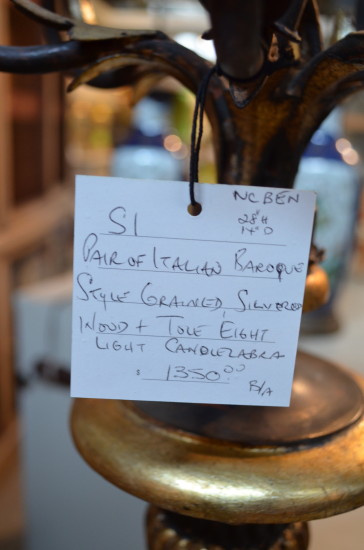 NCBEN
S1
28"H
14"D
PAIR OF ITALIAN BAROQUE
STYLE GRAINED, SILVERED
WOOD + TOLE EIGHT
LIGHT CANDLEABRA
$ 1350.00
B/A